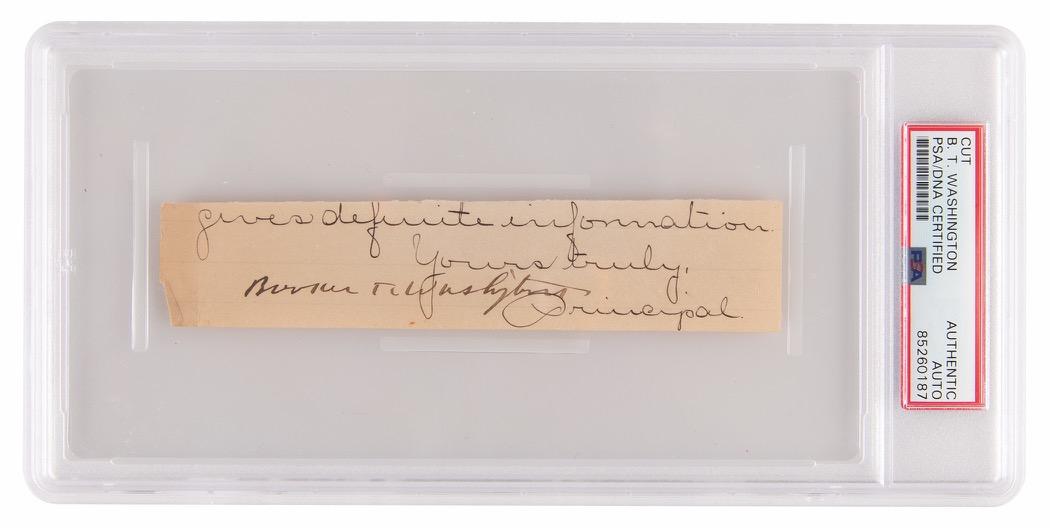 gives definite information.
Yours truly,
Booker T. Washington
Principal.
CUT
B. T. WASHINGTON
PSA/DNA CERTIFIED
PSA
AUTHENTIC
AUTO
85260187